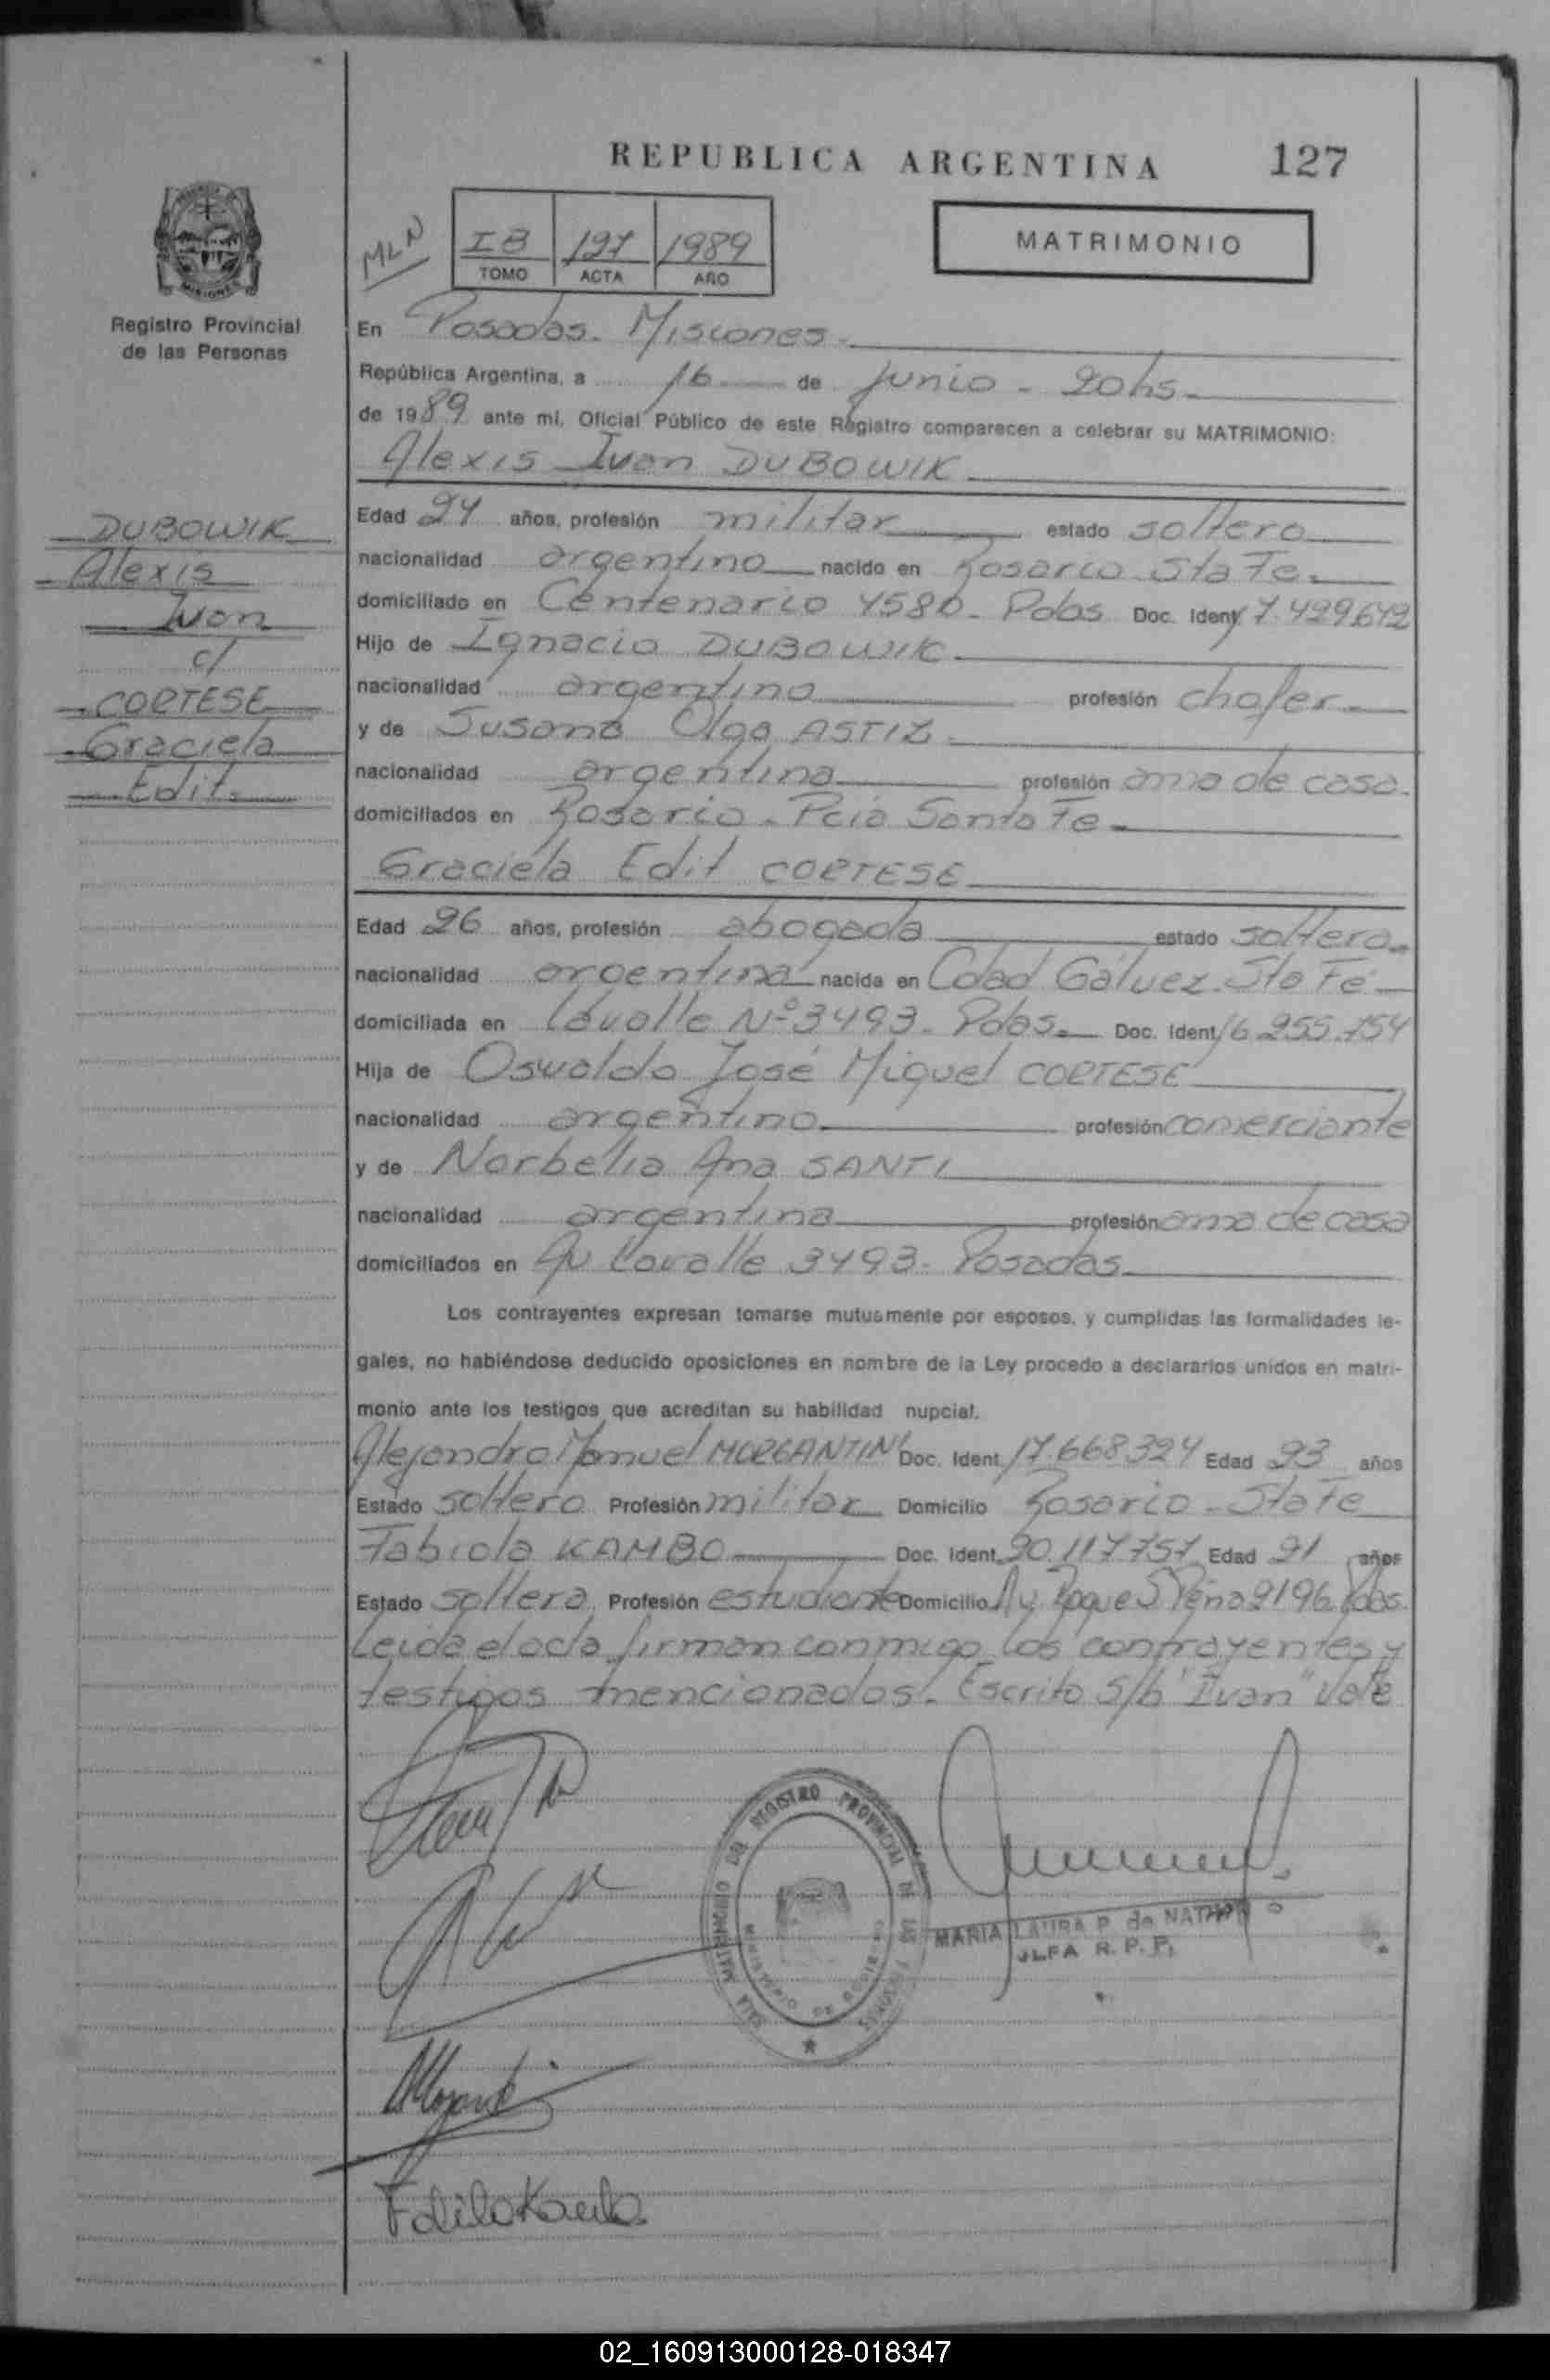 REPUBLICA ARGENTINA 127
MLN
IB 127 1989
TOMO ACTA AÑO
MATRIMONIO
MISIONES
Registro Provincial
de las Personas
DUBOWIK
Alexis
Ivan
c/
CORTESE
Graciela
Edit.
En Posadas. Misiones.
República Argentina, a 16 de Junio - 20hs.
de 1989 ante mi, Oficial Público de este Registro comparecen a celebrar su MATRIMONIO:
Alexis Ivan DUBOWIK
Edad 24 años, profesión militar estado soltero
nacionalidad argentino nacido en Rosario Sta Fe.
domiciliado en Centenario 4580. Pdas Doc. Ident 17.429642
Hijo de Ignacio DUBOWIK
nacionalidad argentino profesión chofer.
y de Susana Olga ASTIZ.
nacionalidad argentina profesión ama de casa.
domiciliados en Rosario. Pcia Santa Fe.
Graciela Edit CORTESE
Edad 26 años, profesión abogada estado soltera.
nacionalidad argentina nacida en Cdad Gálvez. Sta Fe
domiciliada en Lavalle Nº 3493. Pdas. Doc. Ident 16.255.754
Hija de Osvaldo José Miguel CORTESE
nacionalidad argentino profesión comerciante
y de Norbelia Ana SANTI
nacionalidad argentina profesión ama de casa
domiciliados en Av Lavalle 3493. Posadas
Los contrayentes expresan tomarse mutuamente por esposos, y cumplidas las formalidades le-
gales, no habiéndose deducido oposiciones en nombre de la Ley procedo a declararlos unidos en matri-
monio ante los testigos que acreditan su habilidad nupcial.
Alejandro Manuel MORGANTINI Doc. Ident. 17.668.324 Edad 23 años
Estado soltero Profesión militar Domicilio Rosario - Sta Fe
Fabiola KAMBO Doc. Ident. 20.117.757 Edad 21 años
Estado soltera Profesión estudiante Domicilio Av Roque S Peña 2196 Pdas.
Leida el acta firman conmigo los contrayentes y
testigos mencionados. Escrito s/b "Ivan" Vale
REGISTRO PROVINCIAL DE LAS PERSONAS
SALA MATRIMONIO DEL
MINISTERIO DE
MARIA LAURA P. de
JEFA R. P. P.
Fabiola Kambo
02_160913000128-018347